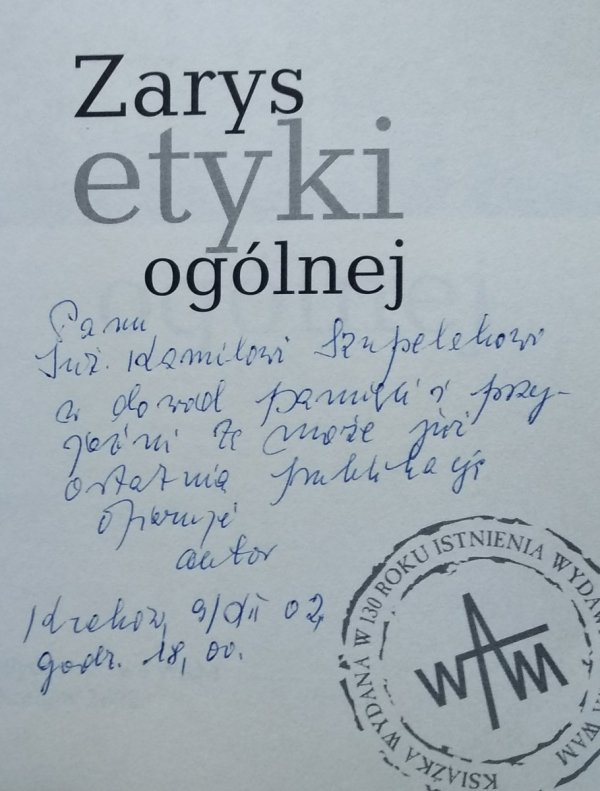 Zarys
etyki
ogólnej
Panu
Inż. Kamilowi Szupelakowi
w dowód pamięci i przy-
jaźni tę może już
ostatnią publikację
ofiaruje
autor
Kraków, 9/XII 02,
godz. 18,00.
KSIĄŻKA WYDANA W 130 ROKU ISTNIENIA WYDAW
WAM
WAM